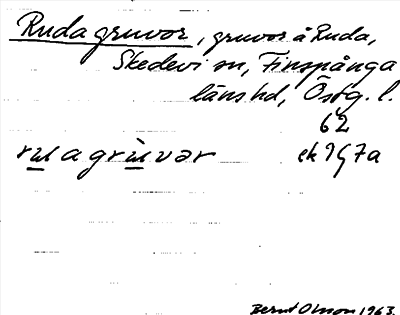 Ruda gruvor, gruvor å Ruda,
Skedevi sn, Finspånga
läns hd, Östg. l.
62
rula grùvər ek 9G7a
Bernt Olsson 1963.